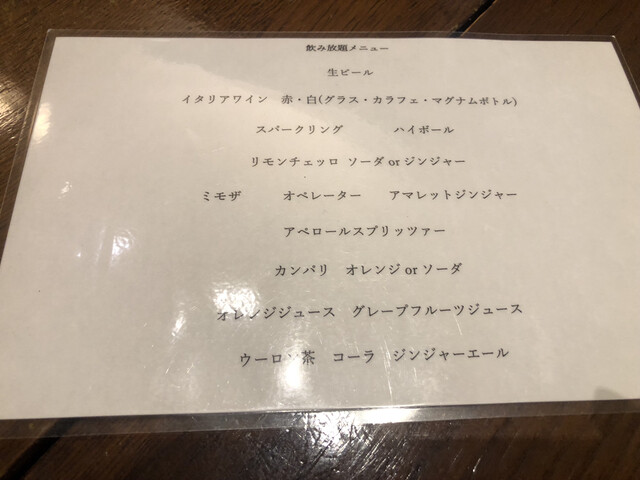 飲み放題メニュー
生ビール
イタリアワイン　赤・白(グラス・カラフェ・マグナムボトル)
スパークリング　ハイボール
リモンチェッロ ソーダ or ジンジャー
ミモザ　オペレーター　アマレットジンジャー
アペロールスプリッツァー
カンパリ　オレンジ or ソーダ
オレンジジュース　グレープフルーツジュース
ウーロン茶　コーラ　ジンジャーエール